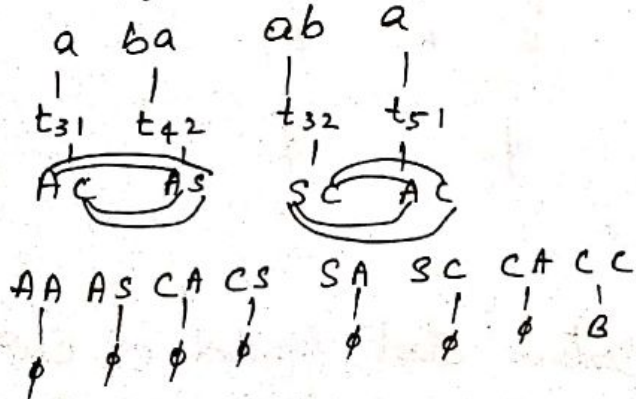 a ba ab a
t31 t42 t32 t51
A C A S S C A C
AA AS CA CS SA SC CA CC
φ φ φ φ φ φ φ B